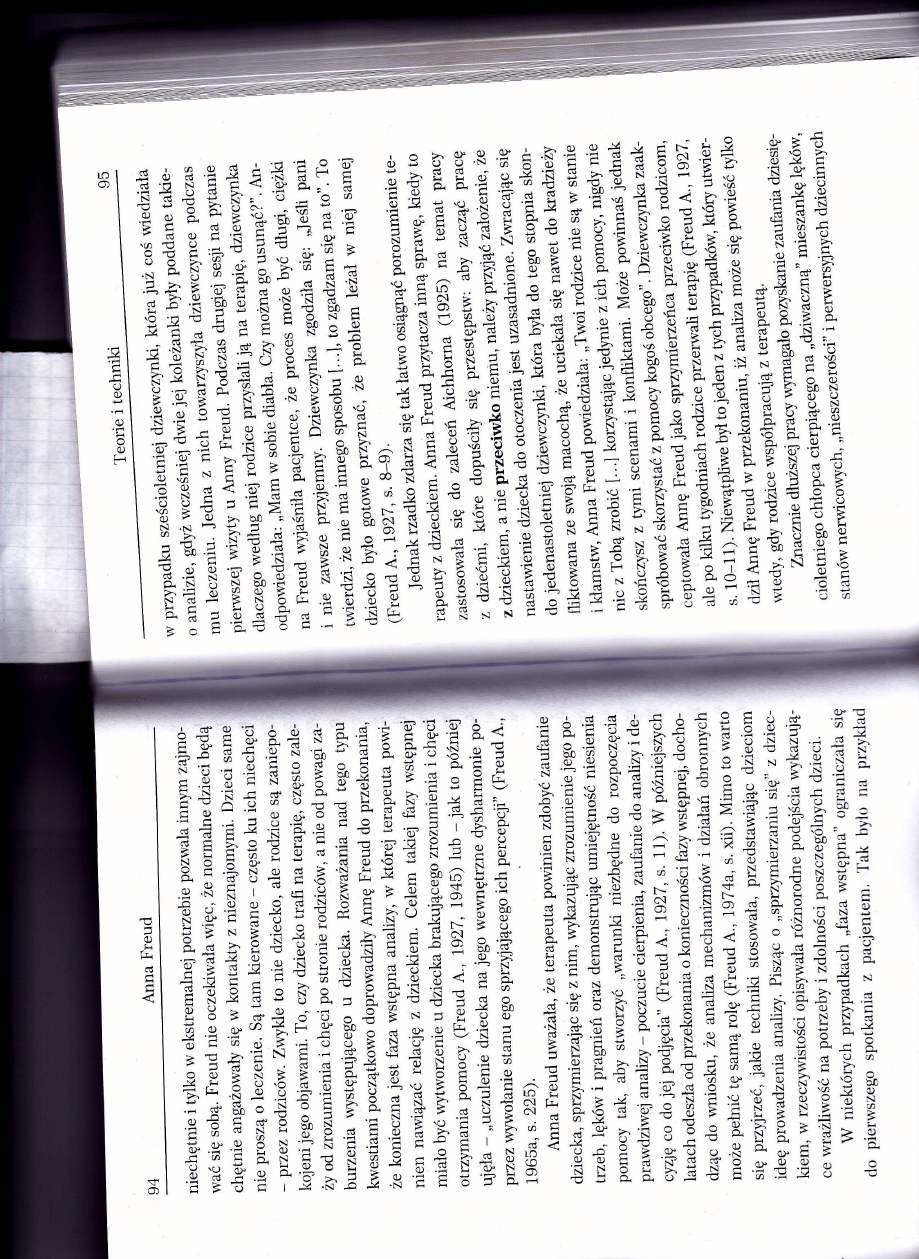 94
Anna Freud
niechętnie i tylko w ekstremalnej potrzebie pozwala innym zajmo-
wać się sobą. Freud nie oczekiwała więc, że normalne dzieci będą
chętnie angażowały się w kontakty z nieznajomymi. Dzieci same
nie proszą o leczenie. Są tam kierowane – często ku ich niechęci
– przez rodziców. Zwykle to nie dziecko, ale rodzice są zaniepo-
kojeni jego objawami. To, czy dziecko trafi na terapię, często zale-
ży od zrozumienia i chęci po stronie rodziców, a nie od powagi za-
burzenia występującego u dziecka. Rozważania nad tego typu
kwestiami początkowo doprowadziły Annę Freud do przekonania,
że konieczna jest faza wstępna analizy, w której terapeuta powi-
nien nawiązać relację z dzieckiem. Celem takiej fazy wstępnej
miało być wytworzenie u dziecka brakującego zrozumienia i chęci
otrzymania pomocy (Freud A., 1927, 1945) lub – jak to później
ujęła – „uczulenie dziecka na jego wewnętrzne dysharmonie po-
przez wywołanie stanu ego sprzyjającego ich percepcji” (Freud A.,
1965a, s. 225).
Anna Freud uważała, że terapeuta powinien zdobyć zaufanie
dziecka, sprzymierzając się z nim, wykazując zrozumienie jego po-
trzeb, lęków i pragnień oraz demonstrując umiejętność niesienia
pomocy tak, aby stworzyć „warunki niezbędne do rozpoczęcia
prawdziwej analizy – poczucie cierpienia, zaufanie do analizy i de-
cyzję co do jej podjęcia” (Freud A., 1927, s. 11). W późniejszych
latach odeszła od przekonania o konieczności fazy wstępnej, docho-
dząc do wniosku, że analiza mechanizmów i działań obronnych
może pełnić tę samą rolę (Freud A., 1974a, s. xii). Mimo to warto
się przyjrzeć, jakie techniki stosowała, przedstawiając dzieciom
ideę prowadzenia analizy. Pisząc o „sprzymierzaniu się” z dziec-
kiem, w rzeczywistości opisywała różnorodne podejścia wykazują-
ce wrażliwość na potrzeby i zdolności poszczególnych dzieci.
W niektórych przypadkach „faza wstępna” ograniczała się
do pierwszego spotkania z pacjentem. Tak było na przykład
Teorie i techniki
95
w przypadku sześcioletniej dziewczynki, która już coś wiedziała
o analizie, gdyż wcześniej dwie jej koleżanki były poddane takie-
mu leczeniu. Jedna z nich towarzyszyła dziewczynce podczas
pierwszej wizyty u Anny Freud. Podczas drugiej sesji na pytanie
dlaczego według niej rodzice przysłali ją na terapię, dziewczynka
odpowiedziała: „Mam w sobie diabła. Czy można go usunąć?”. An-
na Freud wyjaśniła pacjentce, że proces może być długi, ciężki
i nie zawsze przyjemny. Dziewczynka zgodziła się: „Jeśli pani
twierdzi, że nie ma innego sposobu [...], to zgadzam się na to”. To
dziecko było gotowe przyznać, że problem leżał w niej samej
(Freud A., 1927, s. 8–9).
Jednak rzadko zdarza się tak łatwo osiągnąć porozumienie te-
rapeuty z dzieckiem. Anna Freud przytacza inną sprawę, kiedy to
zastosowała się do zaleceń Aichhorna (1925) na temat pracy
z dziećmi, które dopuściły się przestępstw: aby zacząć pracę
z dzieckiem, a nie przeciwko niemu, należy przyjąć założenie, że
nastawienie dziecka do otoczenia jest uzasadnione. Zwracając się
do jedenastoletniej dziewczynki, która była do tego stopnia skon-
fliktowana ze swoją macochą, że uciekała się nawet do kradzieży
i kłamstw, Anna Freud powiedziała: „Twoi rodzice nie są w stanie
nic z Tobą zrobić [...] korzystając jedynie z ich pomocy, nigdy nie
skończysz z tymi scenami i konfliktami. Może powinnaś jednak
spróbować skorzystać z pomocy kogoś obcego”. Dziewczynka zaak-
ceptowała Annę Freud jako sprzymierzeńca przeciwko rodzicom,
ale po kilku tygodniach rodzice przerwali terapię (Freud A., 1927,
s. 10–11). Niewątpliwe był to jeden z tych przypadków, który utwier-
dził Annę Freud w przekonaniu, iż analiza może się powieść tylko
wtedy, gdy rodzice współpracują z terapeutą.
Znacznie dłuższej pracy wymagało pozyskanie zaufania dziesię-
cioletniego chłopca cierpiącego na „dziwaczną” mieszankę lęków,
stanów nerwicowych, „nieszczerości” i perwersyjnych dziecinnych